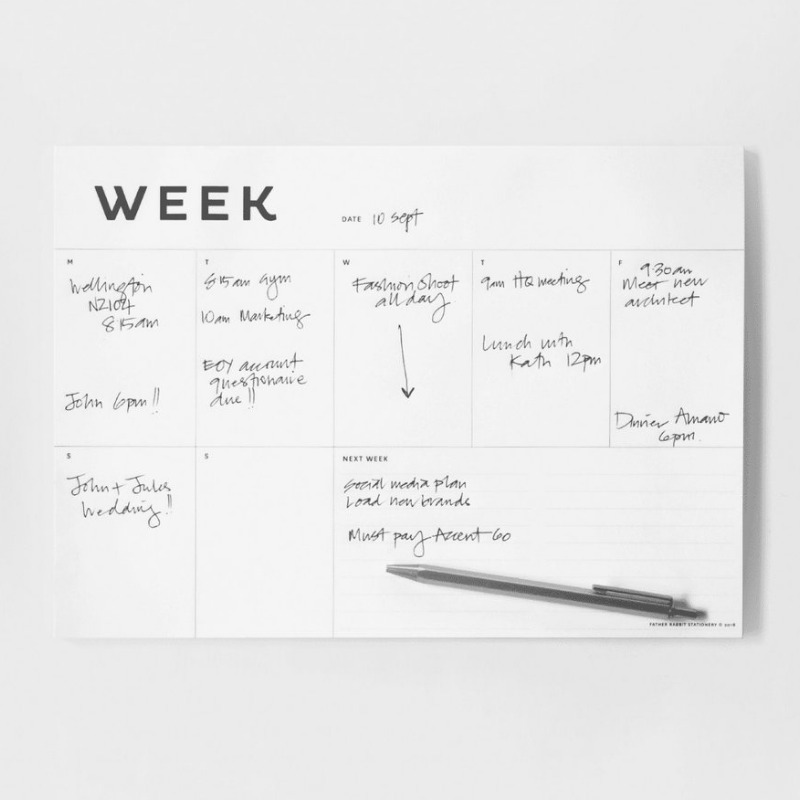 WEEK
DATE 10 Sept
M
Wellington
NZ104
8:15am
John 6pm!!
T
8:15am Gym
10am Marketing
EOY account
questionaire
due!!
W
Fashion Shoot
all day
T
9am HQ meeting
Lunch with
Kath 12pm
F
9.30am
Meet new
architect
Dinner Amano
6pm.
S
John + Jules
Wedding!!
S
NEXT WEEK
Social media plan
Load new brands
Must pay
FATHER RABBIT STATIONERY © 2018